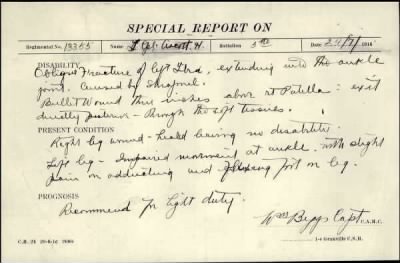 SPECIAL REPORT ON
Regimental No. 13355 L Cpl Scott. H. Battalion 5th Date 24/7/1916
DISABILITY
Oblique Fracture of left Tibia, extending into the ankle
joint. Caused by Shrapnel.
Bullet Wound three inches above at Patella: exit
directly posterior - through the soft tissues.
PRESENT CONDITION
Right leg wound - healed leaving no disability.
Left leg - Impaired movement at ankle with slight
pain on adducting and flexing foot on leg.
PROGNOSIS
Recommend for light duty.
Wm Biggs Capt C.A.M.C.
C.R. 24 29-6-16 2000 Granville C.S.H.